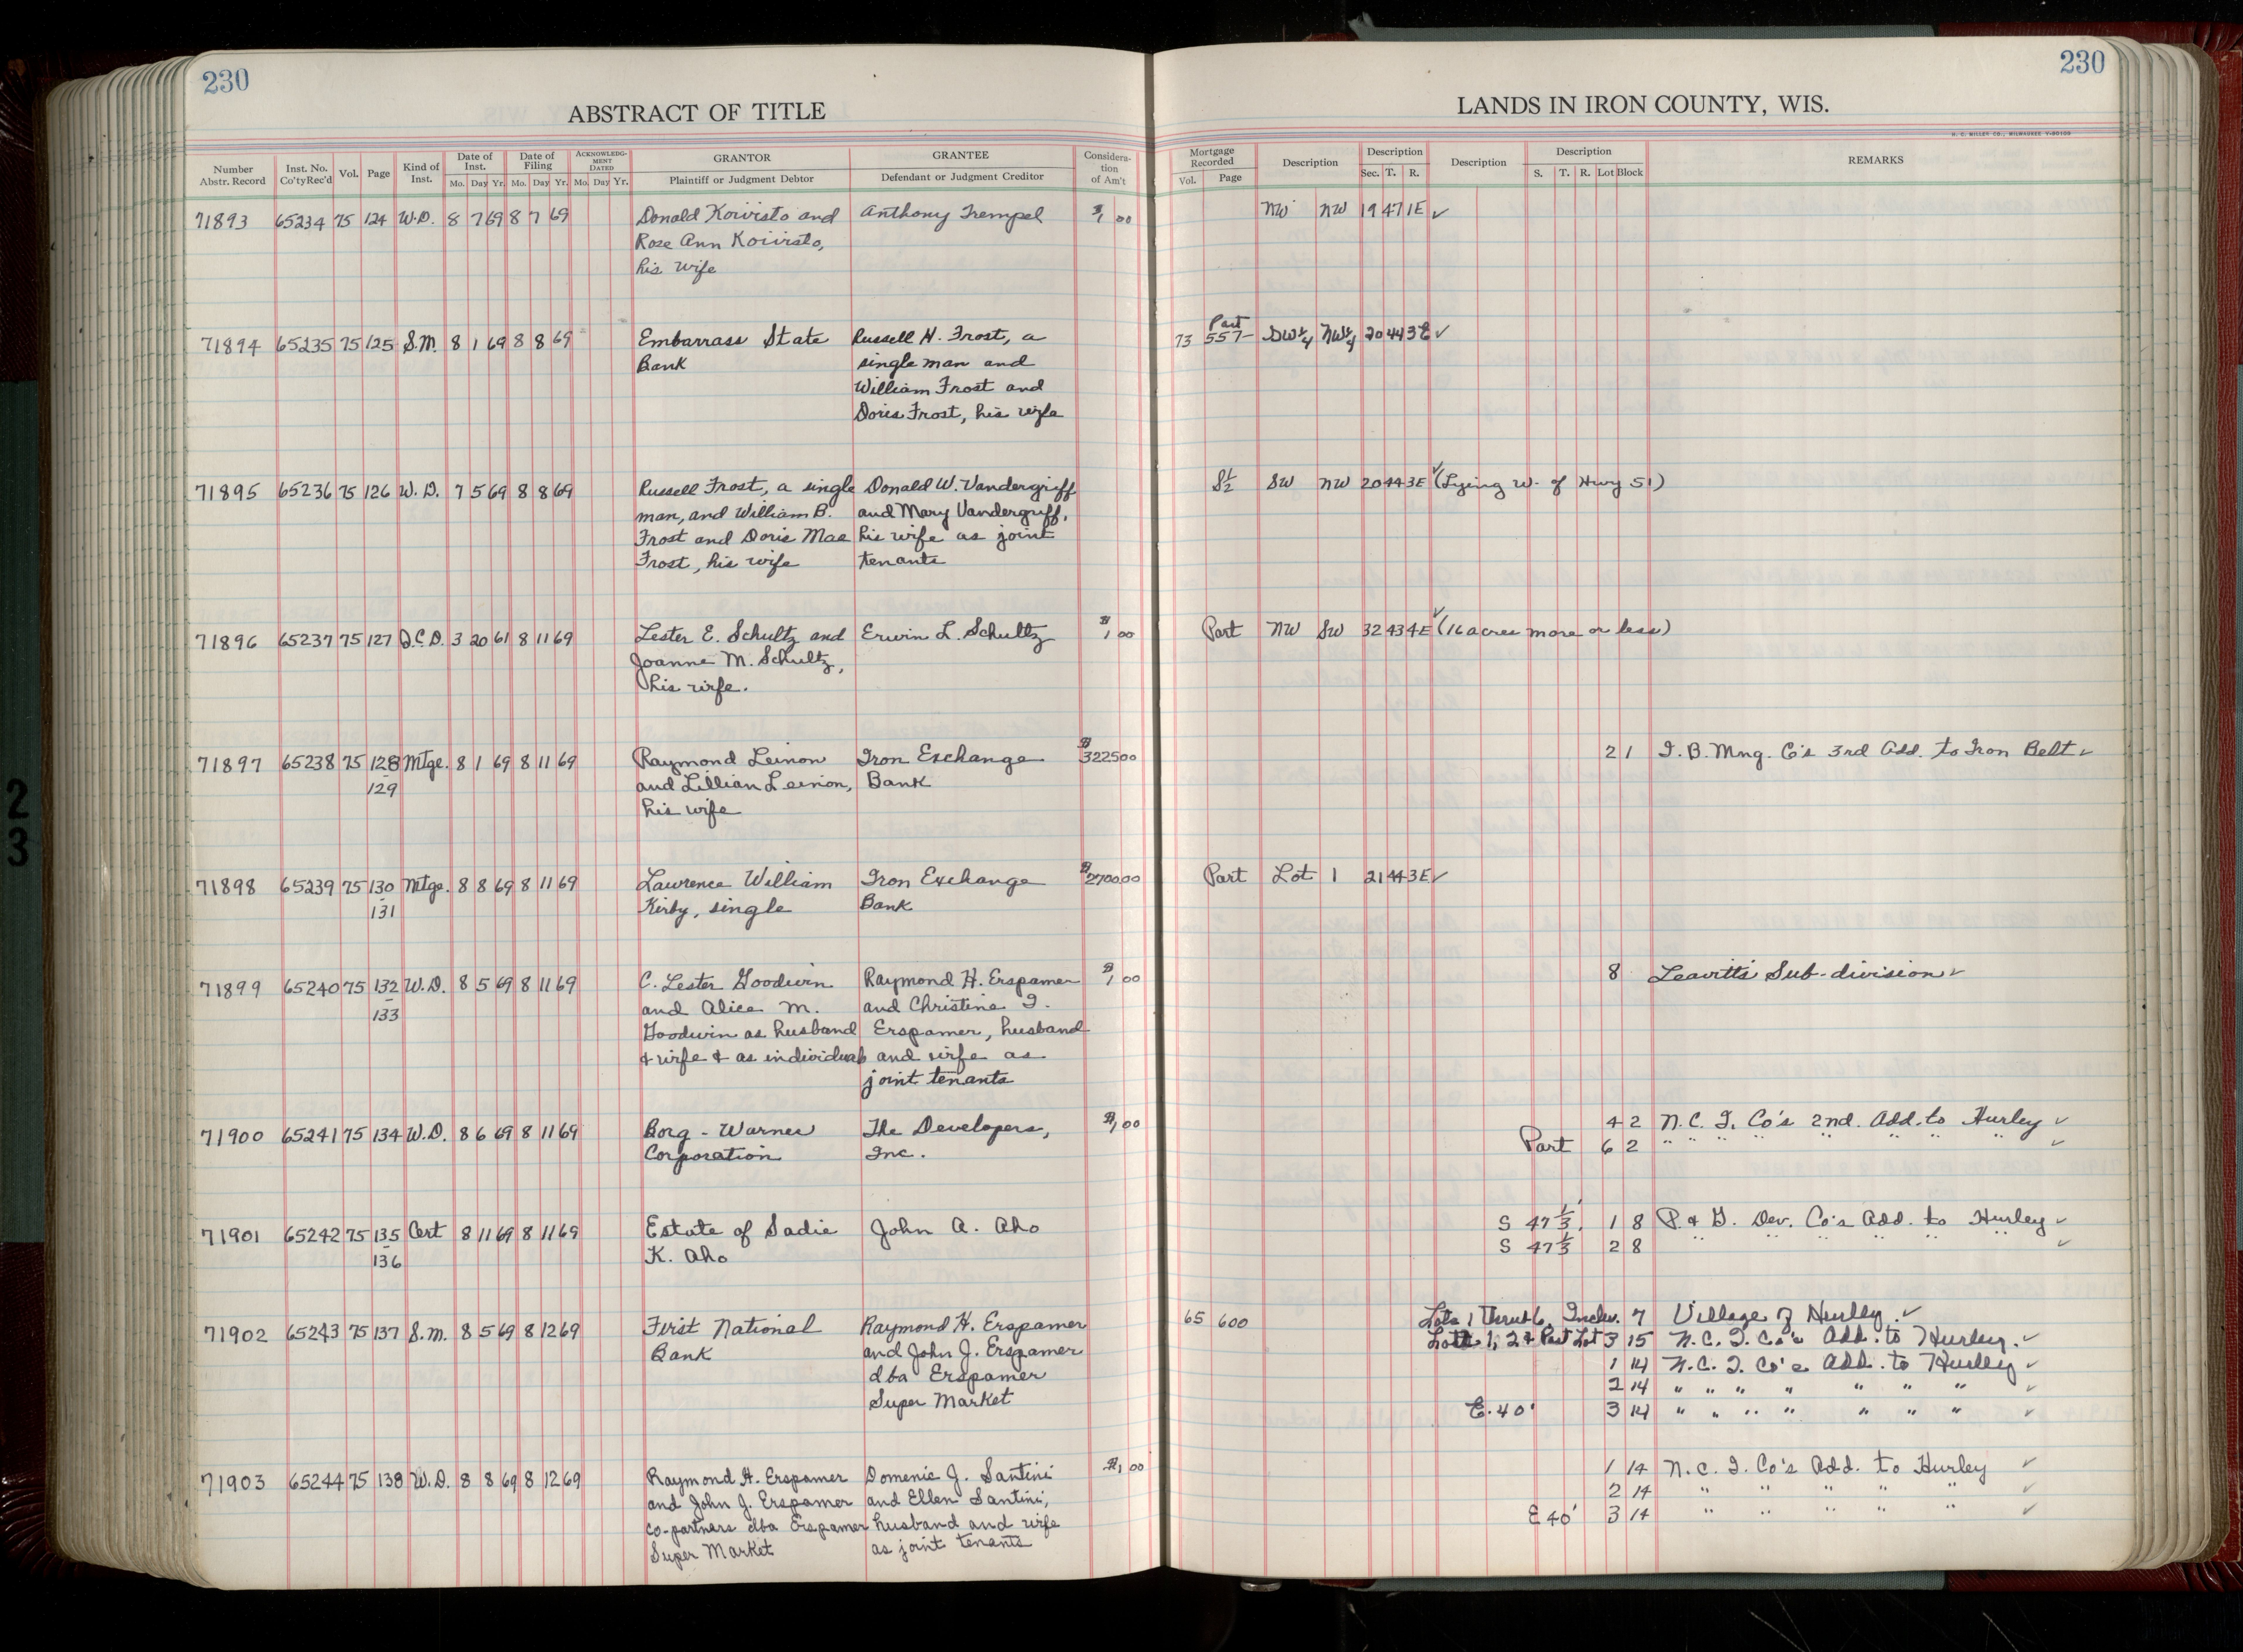 230
230
ABSTRACT OF TITLE
LANDS IN IRON COUNTY, WIS.
H. C. MILLER CO., MILWAUKEE
Number Abstr. Record | Inst. No. Co'tyRec'd | Vol. | Page | Kind of Inst. | Date of Inst. Mo. Day Yr. | Date of Filing Mo. Day Yr. | ACKNOWLEDGMENT DATED Mo. Day Yr. | GRANTOR Plaintiff or Judgment Debtor | GRANTEE Defendant or Judgment Creditor | Consideration of Am't | Mortgage Recorded Vol. Page | Description | Description Sec. T. R. | Description | Description S. T. R. Lot Block | REMARKS
71893 65234 75 124 W.D. 8 7 69 8 7 69 Donald Koivisto and Anthony Trempel $1 00 NW NW 19 47 1E ✓
Rose Ann Koivisto,
his wife
71894 65235 75 125 S.M. 8 1 69 8 8 69 Embarrass State Russell H. Frost, a 73 Part 557 SW¼ NW¼ 20 44 3E ✓
Bank single man and
William Frost and
Doris Frost, his wife
71895 65236 75 126 W.D. 7 5 69 8 8 69 Russell Frost, a single Donald W. Vandergriff S½ SW NW 20 44 3E ✓ (Lying W. of Hwy 51)
man, and William B. and Mary Vandergriff,
Frost and Doris Mae his wife as joint
Frost, his wife tenants
71896 65237 75 127 Q.C.D. 3 20 61 8 11 69 Lester E. Schultz and Erwin L. Schultz $1 00 Part NW SW 32 43 4E ✓ (16 acres more or less)
Joanne M. Schultz,
his wife.
71897 65238 75 128 Mtge. 8 1 69 8 11 69 Raymond Leinon Iron Exchange $3225 00 2 1 I.B. Mng. Co's 3rd Add. to Iron Belt ✓
-129 and Lillian Leinon, Bank
his wife
71898 65239 75 130 Mtge. 8 8 69 8 11 69 Lawrence William Iron Exchange $2700 00 Part Lot 1 21 44 3E ✓
-131 Kirby, single Bank
71899 65240 75 132 W.D. 8 5 69 8 11 69 C. Lester Goodwin Raymond H. Erspamer $1 00 8 Leavitt's Sub-division ✓
-133 and Alice M. and Christine I.
Goodwin as husband Erspamer, husband
& wife & as individuals and wife as
joint tenants
71900 65241 75 134 W.D. 8 6 69 8 11 69 Borg-Warner The Developers, $1 00 4 2 N.C.I. Co's 2nd. Add. to Hurley ✓
Corporation Inc. Part 6 2 " " " " " " " " ✓
71901 65242 75 135 Cert 8 11 69 8 11 69 Estate of Sadie John A. Aho S 47⅓' 1 8 P. & G. Dev. Co's Add. to Hurley ✓
-136 K. Aho S 47⅓ 2 8 " " " " " " ✓
71902 65243 75 137 S.M. 8 5 69 8 12 69 First National Raymond H. Erspamer 65 600 Lots 1 thru 6, Inclu. 7 Village of Hurley. ✓
Bank and John J. Erspamer Lots 1, 2 & Part Lot 3 15 N.C.I. Co's Add. to Hurley. ✓
dba Erspamer 1 14 N.C.I. Co's Add. to Hurley ✓
Super Market 2 14 " " " " " " " ✓
E. 40' 3 14 " " " " " " " ✓
71903 65244 75 138 W.D. 8 8 69 8 12 69 Raymond H. Erspamer Domenic J. Santini $1 00 1 14 N.C.I. Co's Add. to Hurley ✓
and John J. Erspamer and Ellen Santini, 2 14 " " " " " ✓
co-partners dba Erspamer husband and wife E 40' 3 14 " " " " " ✓
Super Market as joint tenants
2
3